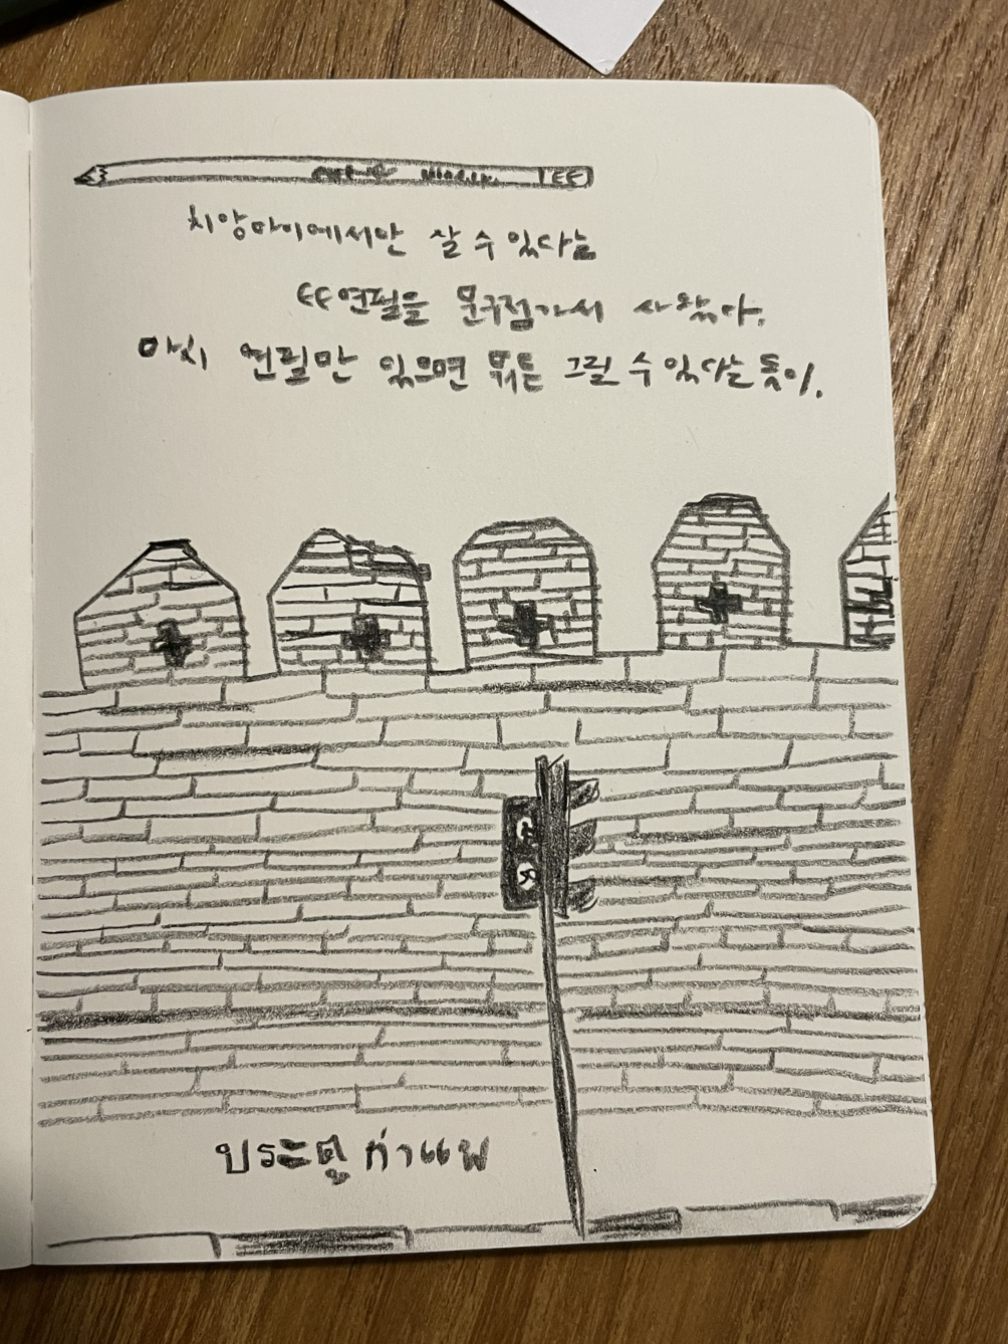 EE
치앙마이에서만 살 수 있다는
EE연필을 문구점가서 사왔다.
마치 연필만 있으면 뭐든 그릴 수 있다는 듯이.
ประตู ท่าแพ